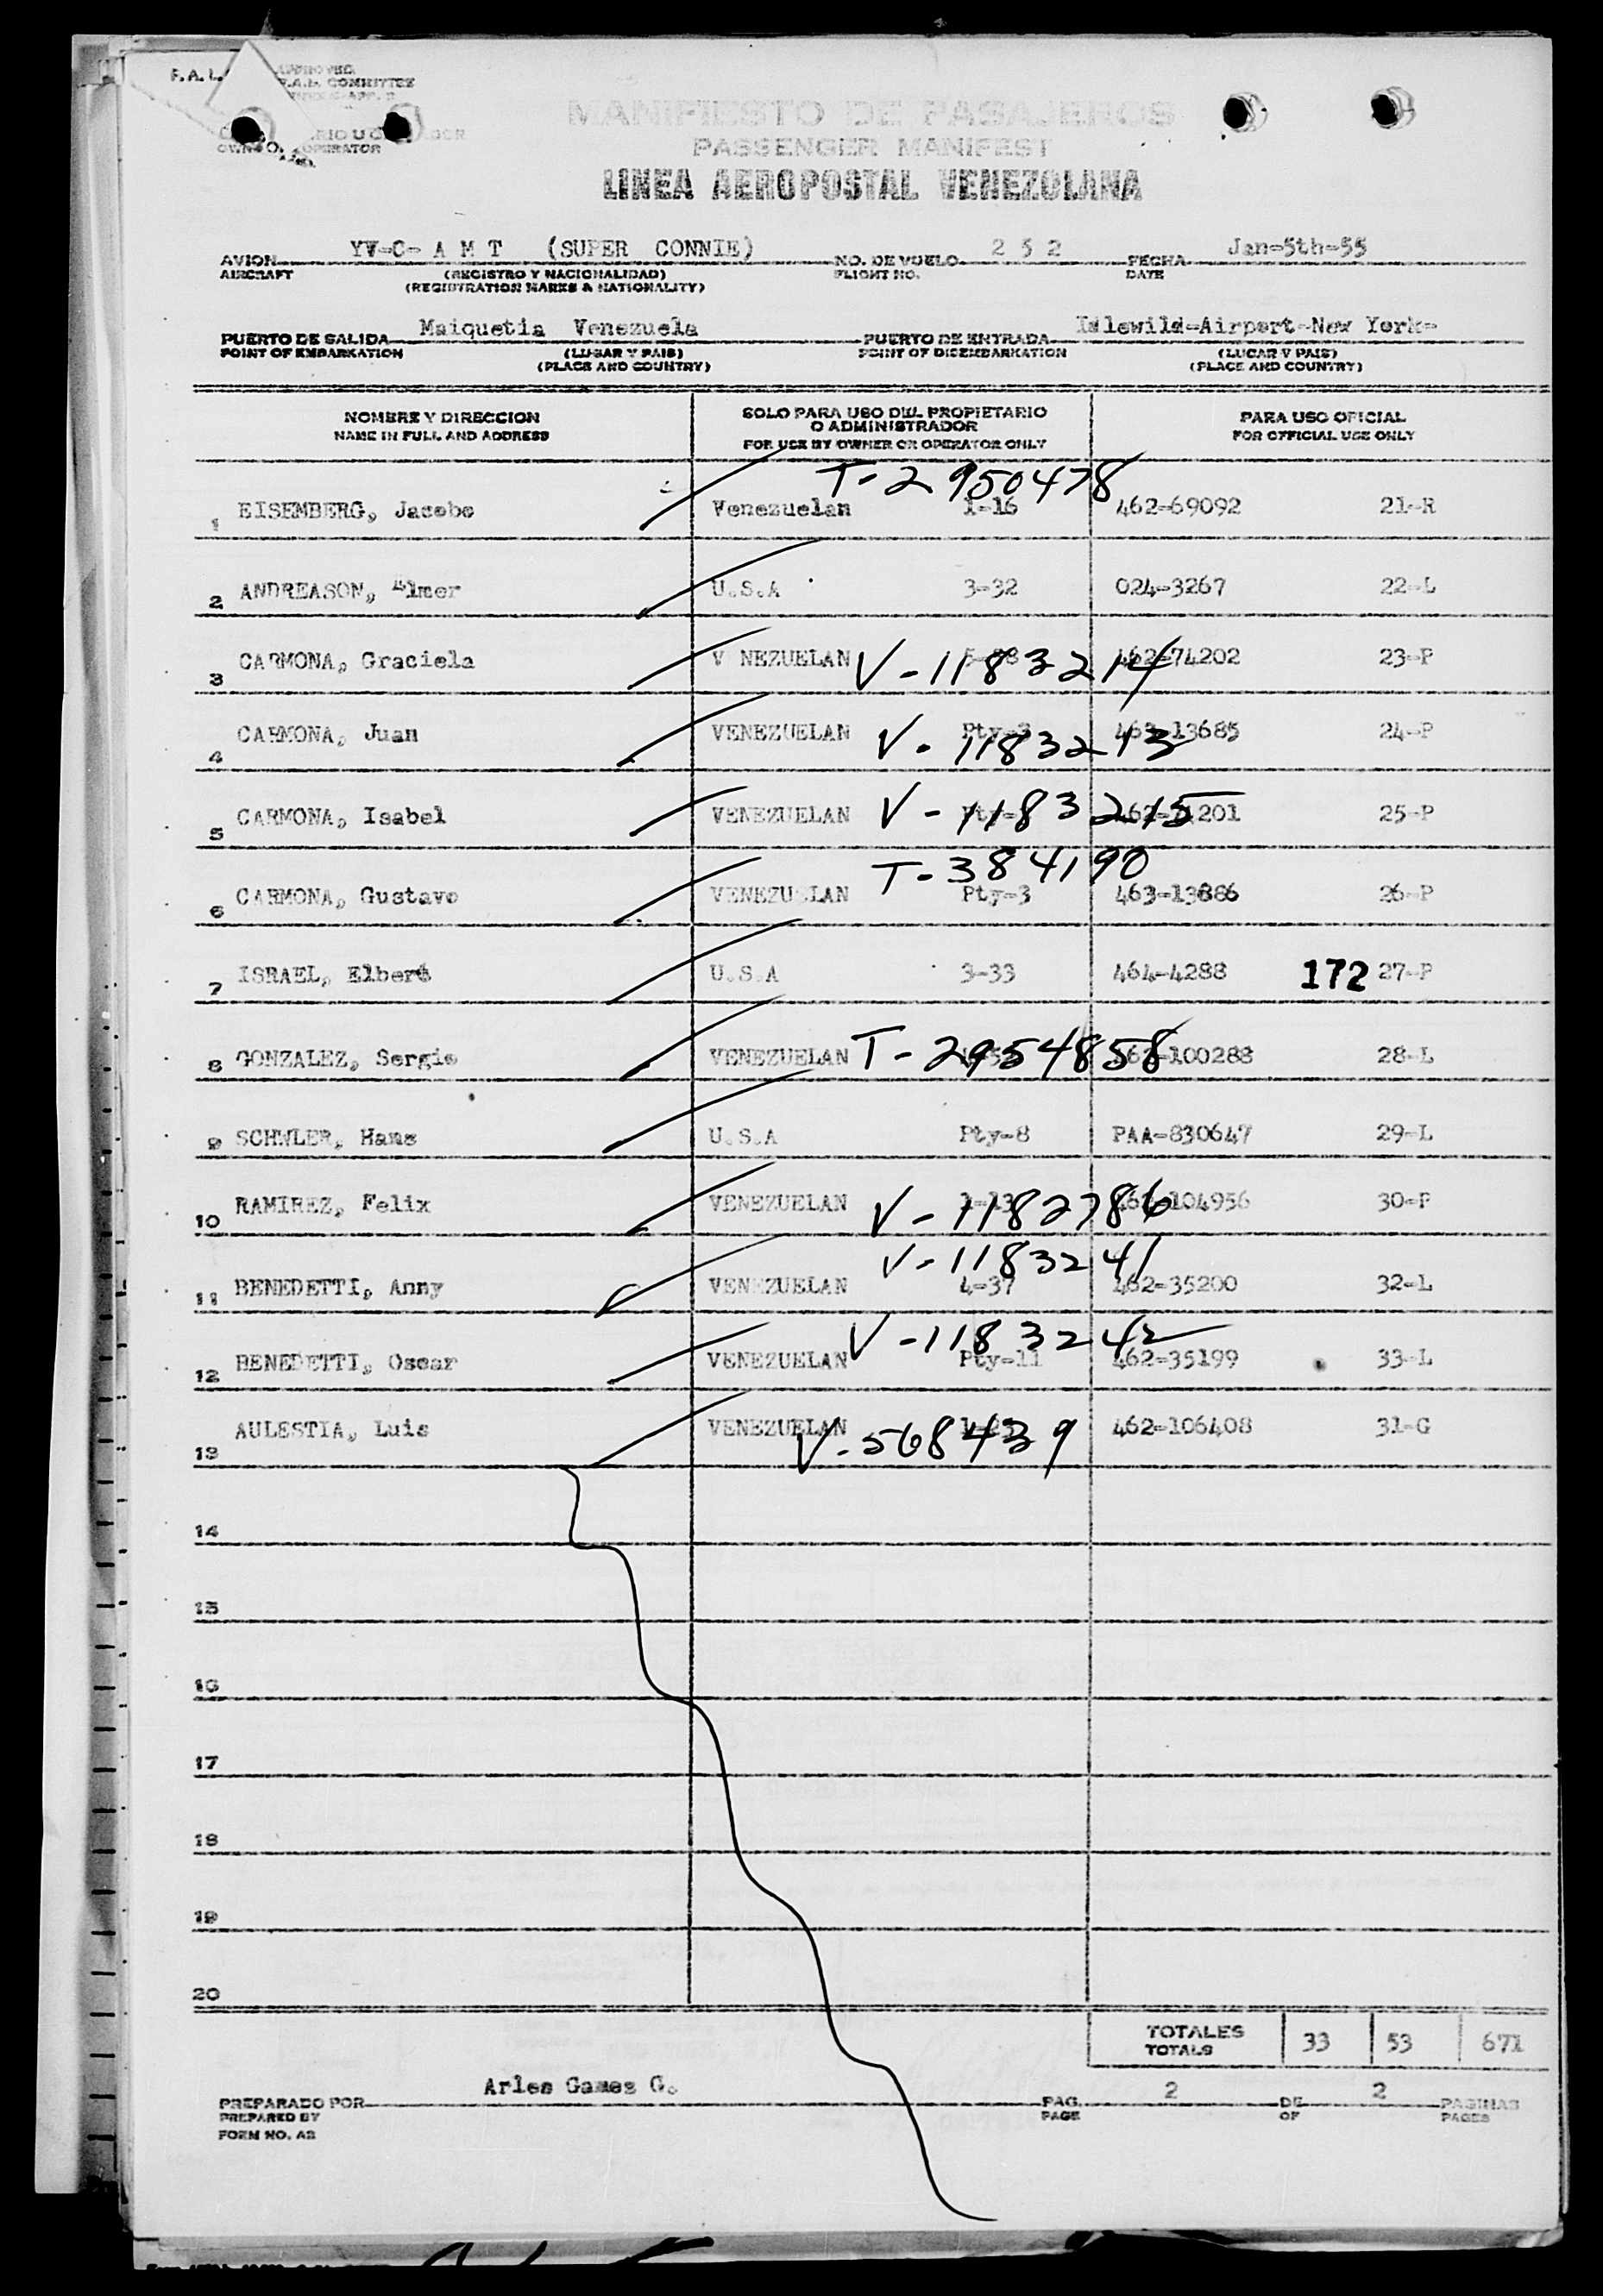 F. A. L.
APPROVED
F.A.L. COMMITTEE
OPERATOR
MANIFIESTO DE PASAJEROS
PASSENGER MANIFEST
LINEA AEROPOSTAL VENEZOLANA
AVION YV-C- A M T (SUPER CONNIE) NO. DE VUELO 2 5 2 FECHA Jan-5th-55
AIRCRAFT (REGISTRO Y NACIONALIDAD) FLIGHT NO. DATE
(REGISTRATION MARKS & NATIONALITY)
PUERTO DE SALIDA Maiquetia Venezuela PUERTO DE ENTRADA Idlewild-Airport-New York-
POINT OF EMBARKATION (LUGAR Y PAIS) POINT OF DISEMBARKATION (LUGAR Y PAIS)
(PLACE AND COUNTRY) (PLACE AND COUNTRY)
NOMBRE Y DIRECCION SOLO PARA USO DEL PROPIETARIO O ADMINISTRADOR PARA USO OFICIAL
NAME IN FULL AND ADDRESS FOR USE BY OWNER OR OPERATOR ONLY FOR OFFICIAL USE ONLY
T-2950478
1 EISEMBERG, Jacobo Venezuelan 1-16 462-69092 21-R
2 ANDREASON, Elmer U.S.A 3-32 024-3267 22-L
3 CARMONA, Graciela V NEZUELAN V-1183214 462-74202 23-P
4 CARMONA, Juan VENEZUELAN Pty-3 V-1183213 463-13685 24-P
5 CARMONA, Isabel VENEZUELAN V-1183215 25-P
T-384190
6 CARMONA, Gustavo VENEZUELAN Pty-3 463-13886 26-P
7 ISRAEL, Elbert U.S.A 3-33 464-4288 172 27-P
8 GONZALEZ, Sergio VENEZUELAN T-2954858 462-100288 28-L
9 SCHWLER, Hans U.S.A Pty-8 PAA-830647 29-L
10 RAMIREZ, Felix VENEZUELAN 1-13 V-1182786 462-104956 30-P
V-1183241
11 BENEDETTI, Anny VENEZUELAN 4-37 462-35200 32-L
V-1183242
12 BENEDETTI, Oscar VENEZUELAN Pty-11 462-35199 33-L
13 AULESTIA, Luis VENEZUELAN V-568439 462-106408 31-G
14
15
16
17
18
19
20
TOTALES 33 53 671
TOTALS
PREPARADO POR Arles Games G. PAG. 2 DE 2 PAGINAS
PREPARED BY PAGE OF PAGES
FORM NO. A2